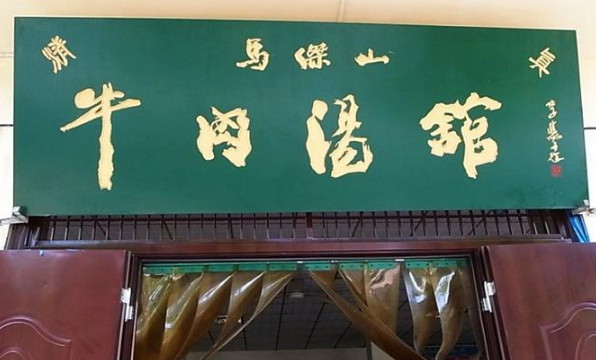 清 馬傑山 真
牛肉湯館